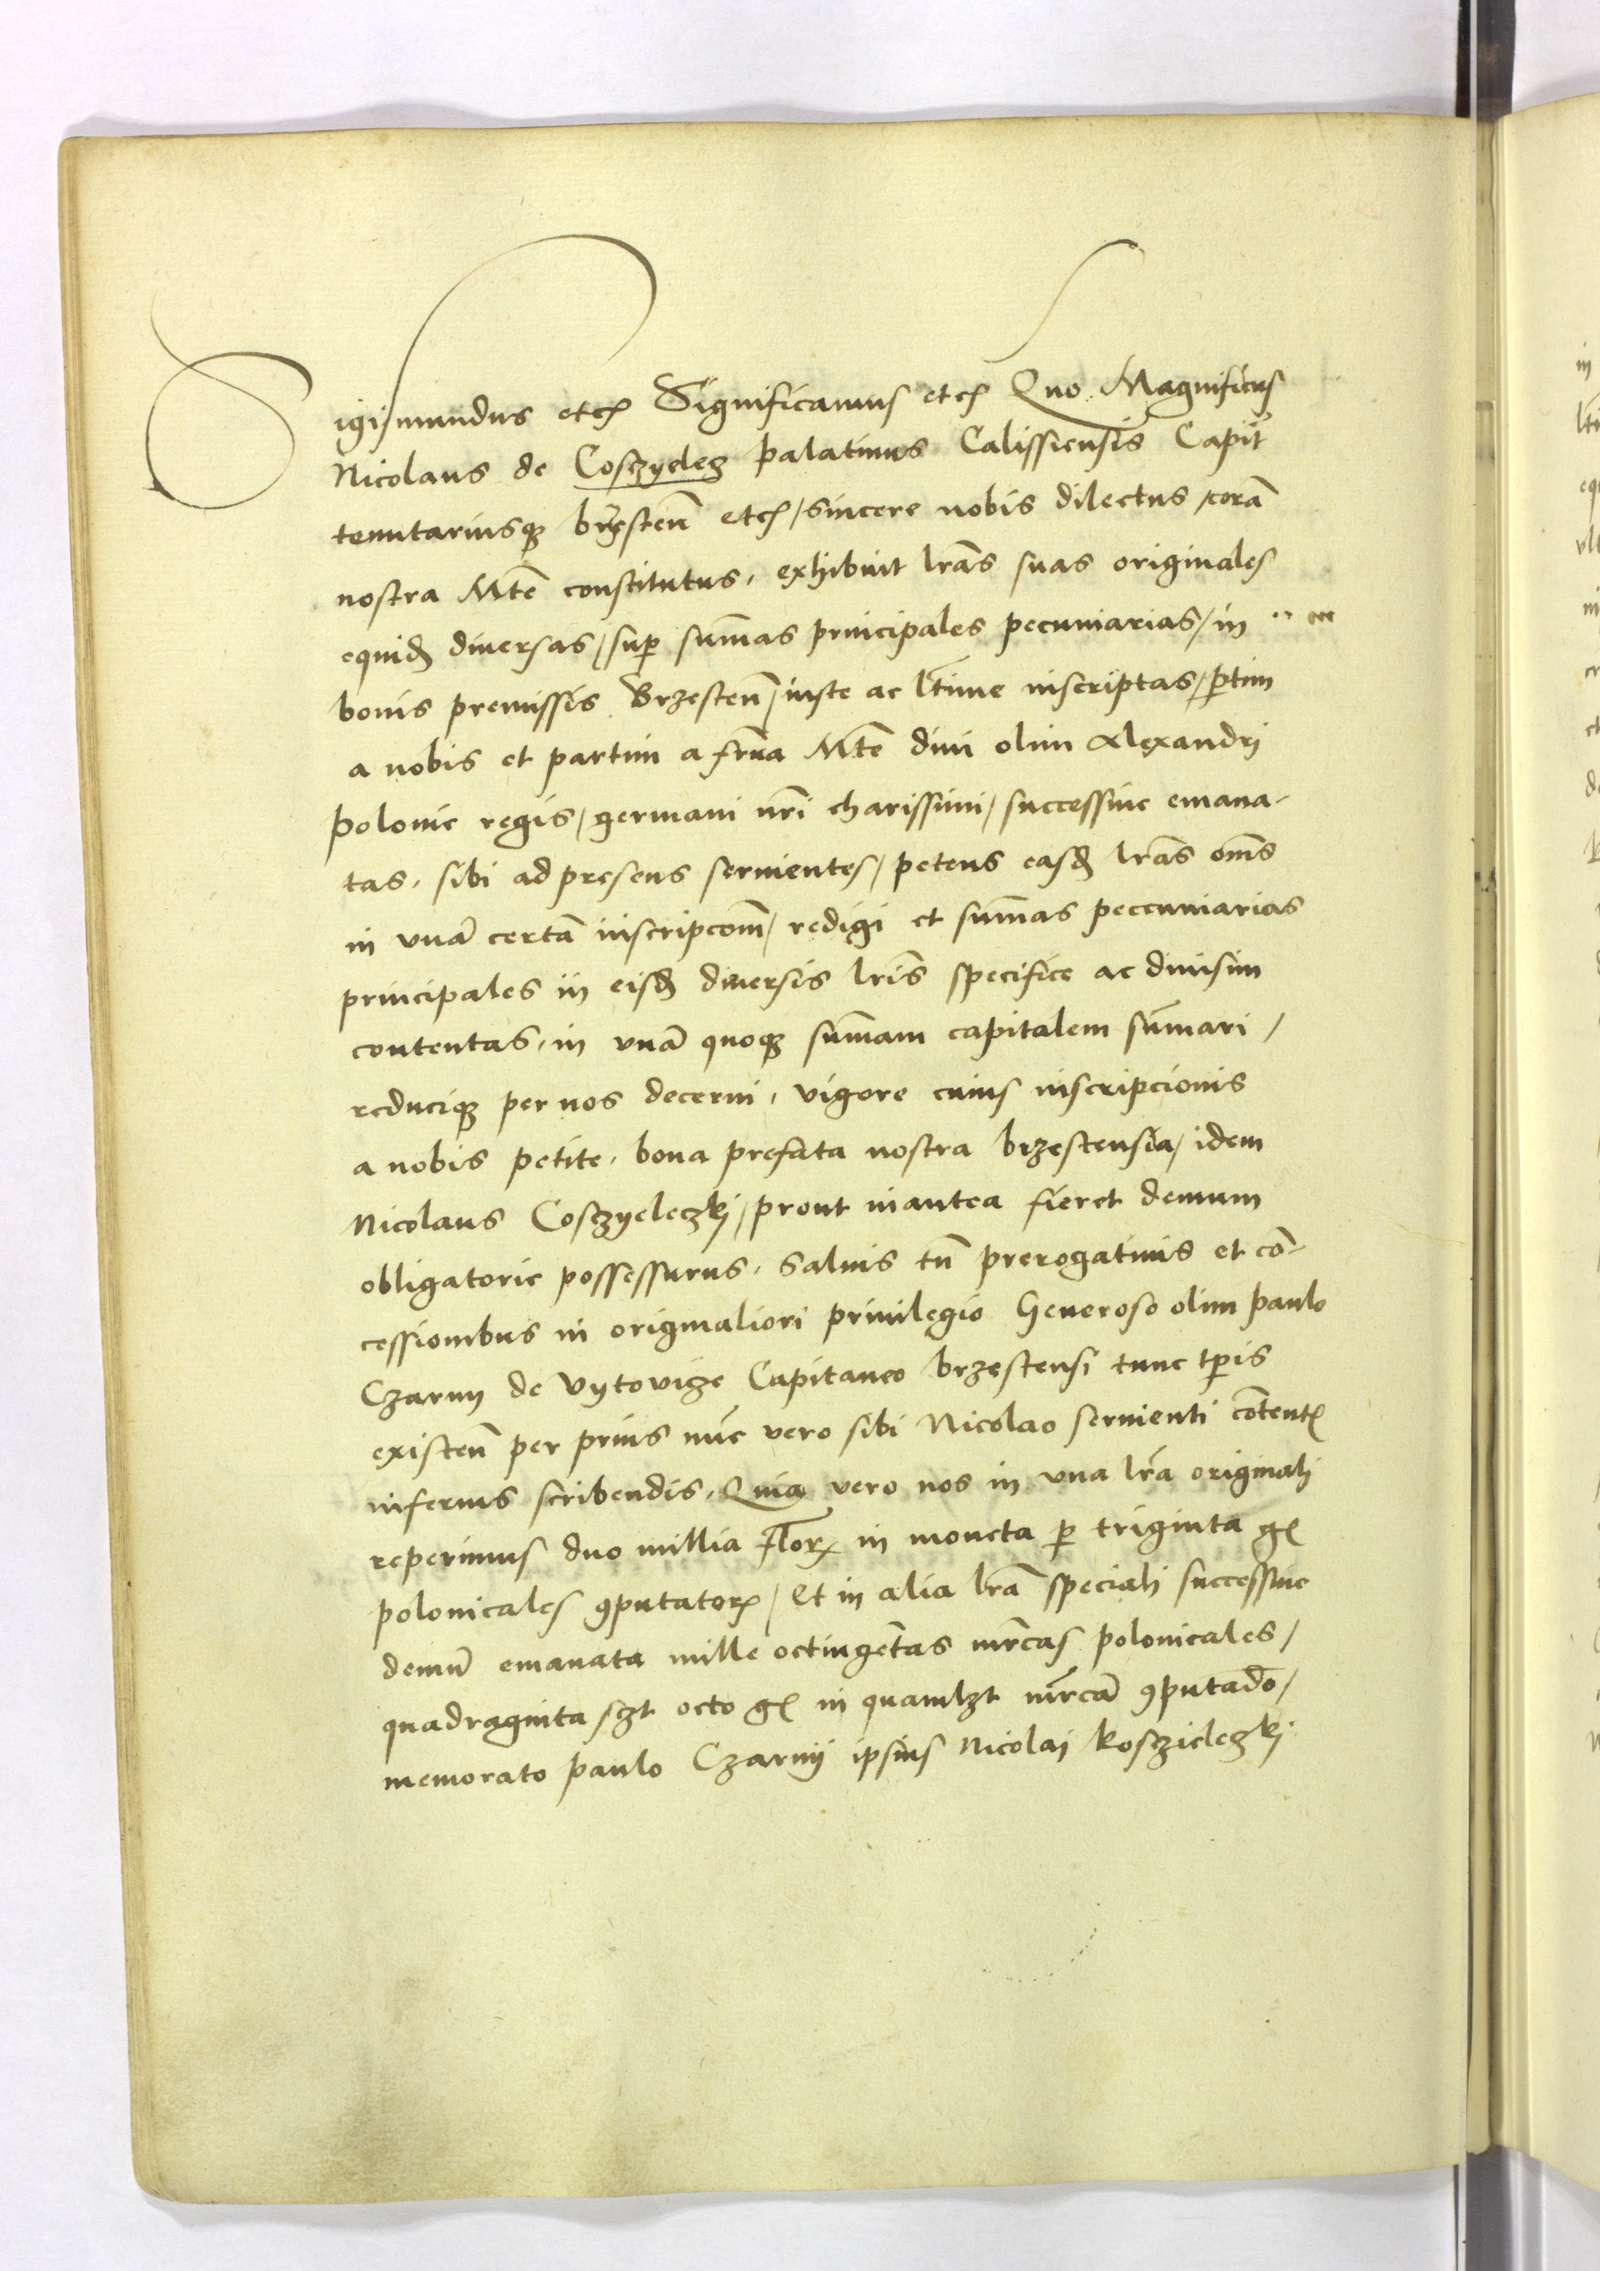 Sigismundus etcꝭ Significamus etcꝭ Quo Magnificus
Nicolaus de Cosczyelecz palatinus Calissiensis Capit̄
tenutariusqꝫ brzesten̄ etcꝭ / sincere nobis dilectus / corā
nostra Mte᷒ constitutus, exhibuit lrās suas originales
equid̄ diversas / sup̱ sum̄as principales pecuniarias / in
bonis premissis Brzesten̄ / iuste ac ltīme inscriptas / ꝑtim
a nobis et partim a frn̄a Mte᷒ divi olim Alexandri
polonie regis / germani nrī charissimi / successive emana-
tas, sibi ad presens servientes / petens easd̄ lrās om̄s
in unā certā inscripcom̄ / redigi et sum̄as peccuniarias
principales in eisd̄ diversis lrīs specifice ac divisim
contentas, in unā quoqꝫ sum̄am capitalem sūmari /
reduciqꝫ per nos decerni, vigore cuius inscripcionis
a nobis petite, bona prefata nostra brzestensia / idem
Nicolaus Cosczyeleczkj / prout inantea fieret demum
obligatorie possessurus, Salvis tn̄ prerogativis et con-
cessionibus in originaliori privilegio Generoso olim paulo
Czarny de Vytovicze Capitaneo brzestensi tunc tꝑis
existen̄ per prius nūc vero sibi Nicolao servienti cōtentꝭ
inferius scribendis, Quia vero nos in una lrā originali
reperimus duo millia florꝝ in moneta ꝑ triginta gꝭ
polonicales ꝯputatorꝝ / Et in alia lrā speciali successive
demū emanata mille octingētas mrc̄as polonicales /
quadraginta sꝫt octo gꝭ in quamlꝫt mrc̄ā ꝯputādo /
memorato paulo Czarnij ipsius Nicolaj kosczieleczkj